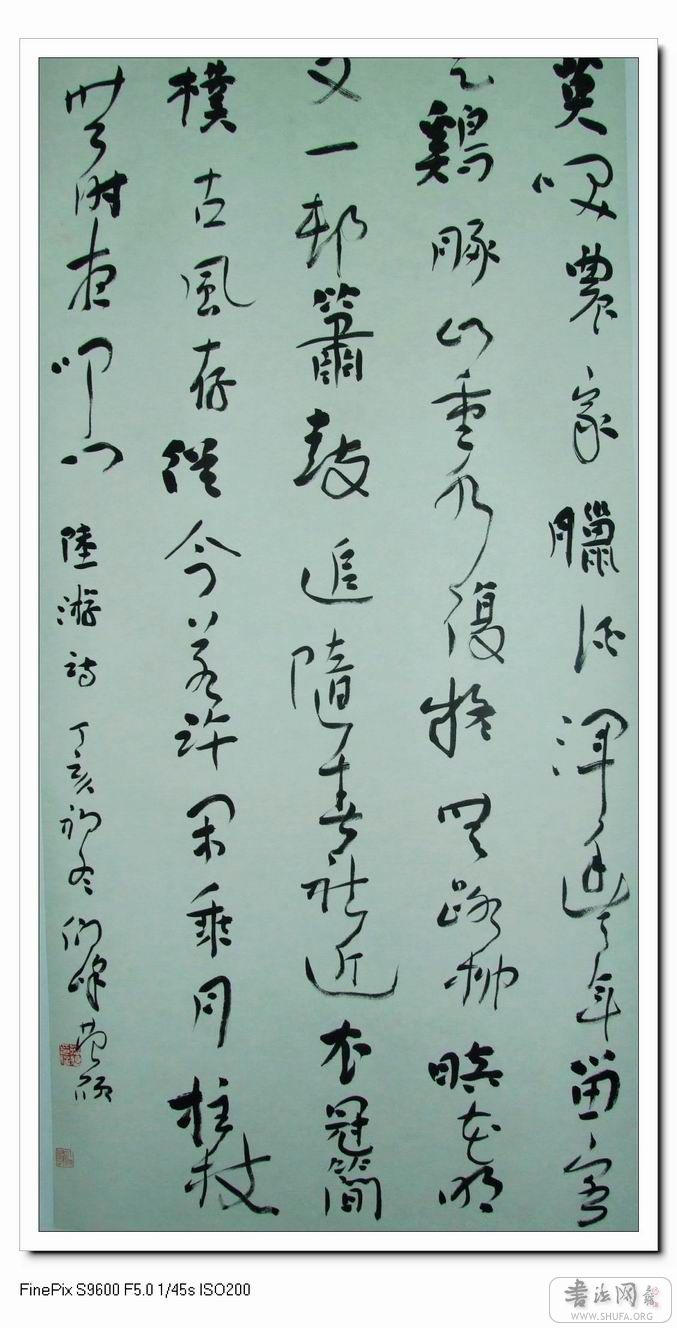 莫咲農家臘酒渾逢年留客
足鷄豚山重水復疑無路柳暗花明
又一邨簫鼓追隨春社近衣冠簡
樸古風存從今若許閑乘月柱杖
無時夜叩門 陸游詩 丁亥初冬
FinePix S9600 F5.0 1/45s ISO200
書法网
WWW.SHUFA.ORG